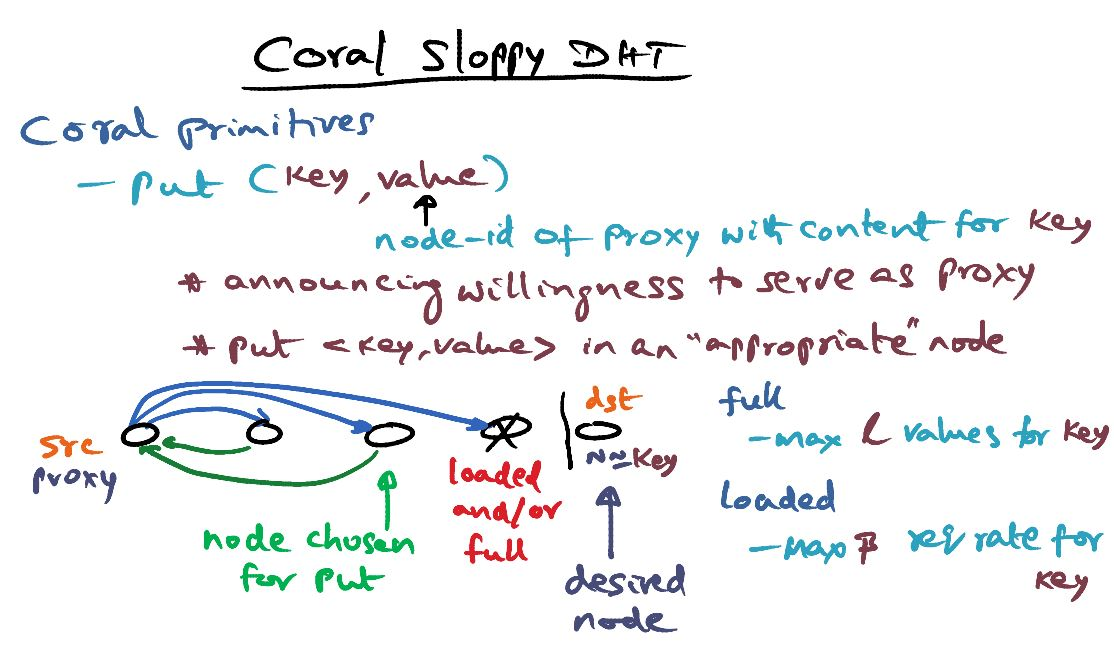 Coral Sloppy DHT
Coral primitives
- put (key, value)
node-id of proxy with content for key
# announcing willingness to serve as proxy
# put <key, value> in an "appropriate" node
src
proxy
node chosen
for put
loaded
and/or
full
dst
≈key
desired
node
full
- max l values for key
loaded
- max β req rate for
key